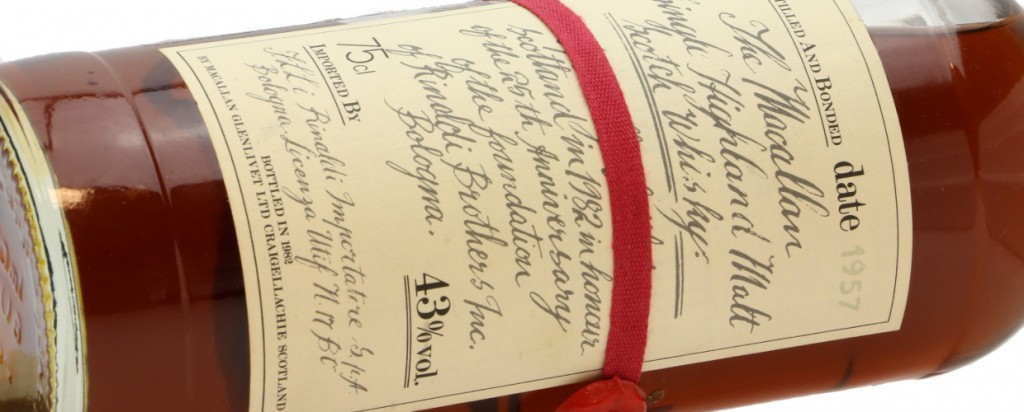 TILLED AND BONDED
date 1957
The Macallan
Single Highland Malt
Scotch Whisky.
Bottled in 1982 in honour
of the 25th Anniversary
of the foundation
of Rinaldi Brothers Inc.
Bologna.
43% vol.
75cl
IMPORTED BY
F.lli Rinaldi Importatori S.p.A.
Bologna Licenza Utif N. 17 BO
BOTTLED IN 1982
BY MACALLAN GLENLIVET LTD CRAIGELLACHIE SCOTLAND